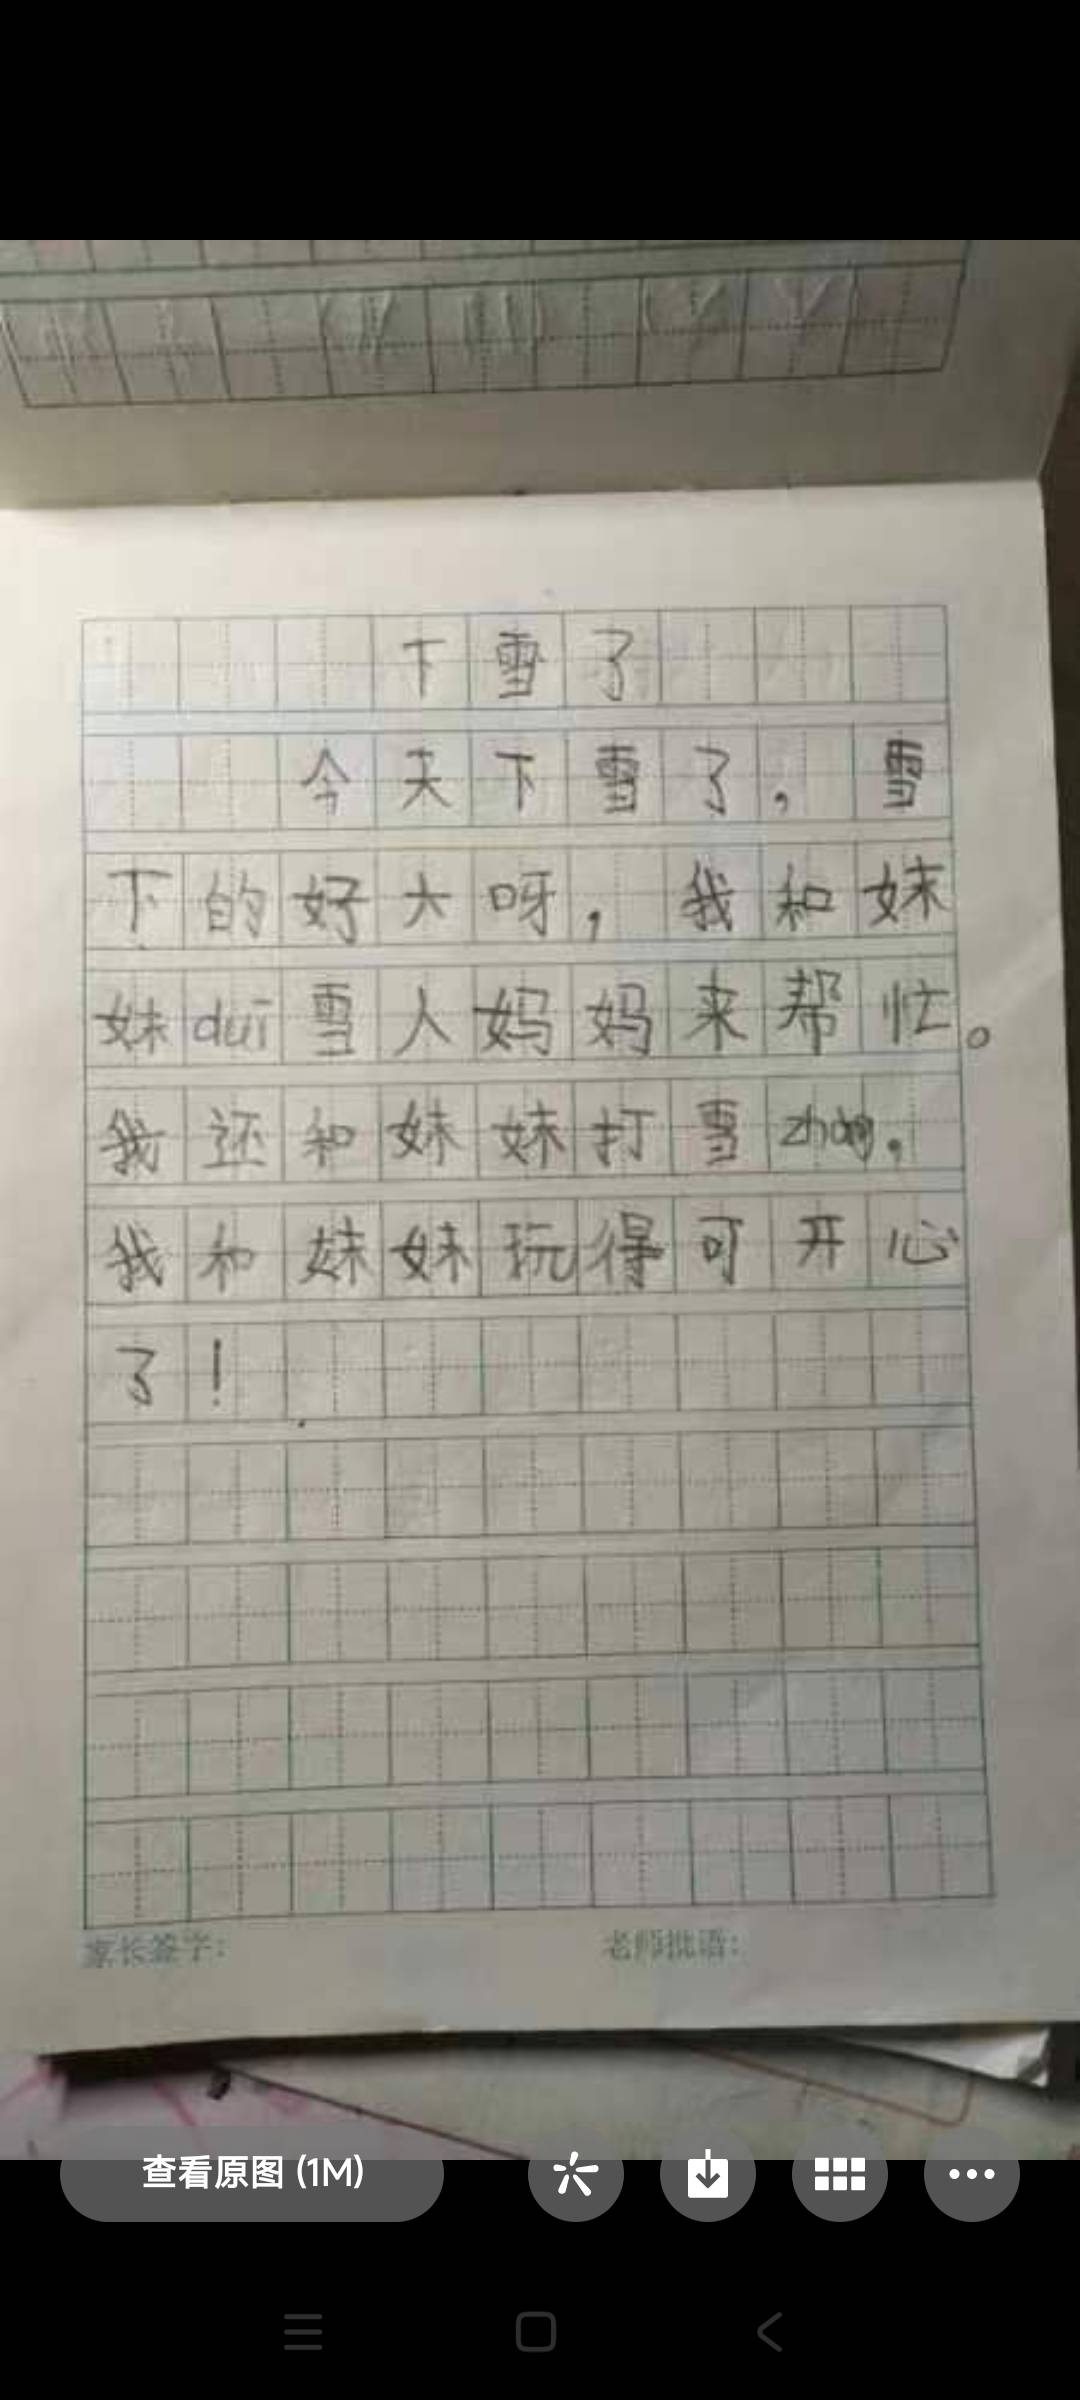 下雪了
今天下雪了，雪
下的好大呀，我和妹
妹duī雪人妈妈来帮忙。
我还和妹妹打雪zhang。
我和妹妹玩得可开心
了！
家长签字：
老师批语：
查看原图 (1M)